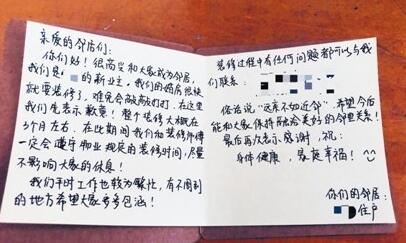 亲爱的邻居们:
你们好！很高兴和大家成为邻居,
我们是
的新业主,我们的婚房很快
就要装修了,难免会敲敲打打,在这里
我们先表示歉意！整个装修大概在
3个月左右,在此期间我们和装修师傅
一定会遵守物业规定的装修时间,尽量
不影响大家的休息！
我们平时工作也较为繁忙,有不周到
的地方希望大家多多包涵！
装修过程中有任何问题都可以与我
们联系:
俗话说“远亲不如近邻”,希望今后
能和大家保持融洽美好的邻里关系！
最后再次表示感谢,祝:
身体健康,家庭幸福！
你们的邻居:
住户